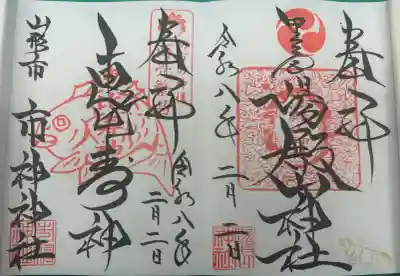 奉拝
里之宮
湯殿山神社
令和八年
二月二日
奉拝
恵比寿神
令和八年
二月二日
山形市
市神神社